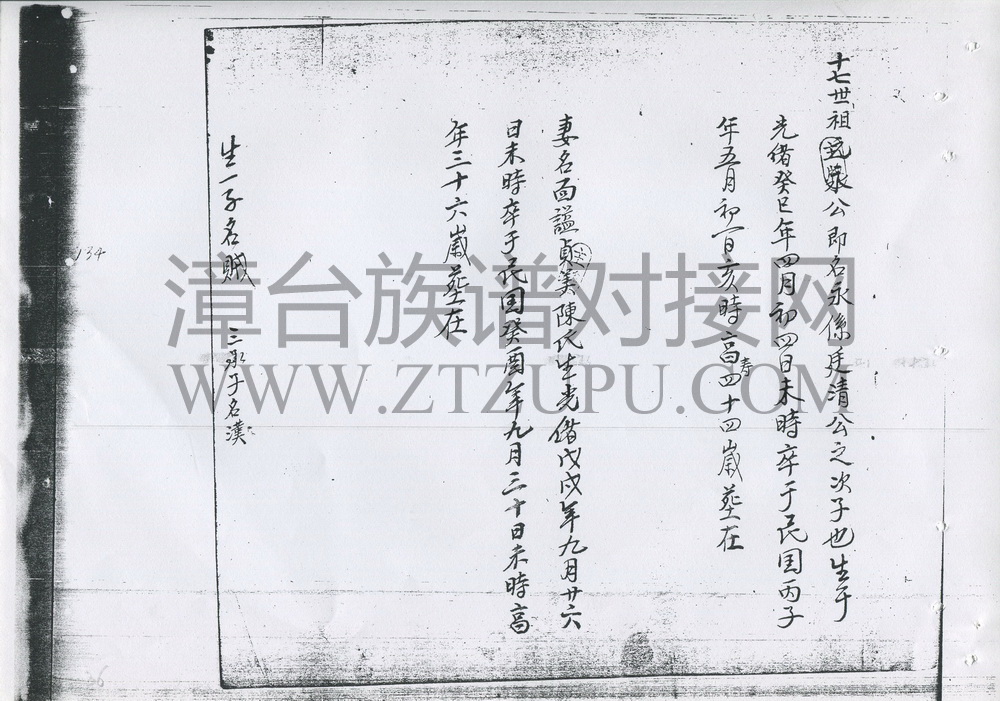 十七世祖 公即名永係廷清公之次子也生于
光绪癸巳年四月初四日未時卒于民国丙子
年五月初一日亥時高寿四十四歲塟在
妻名面謚貞美陳氏生光绪戊戌年九月廿六
日未時卒于民国癸酉年九月三十日未時高
年三十六歲塟在
生一子名賊
三承子名漢
134
漳台族谱对接网
WWW.ZTZUPU.COM